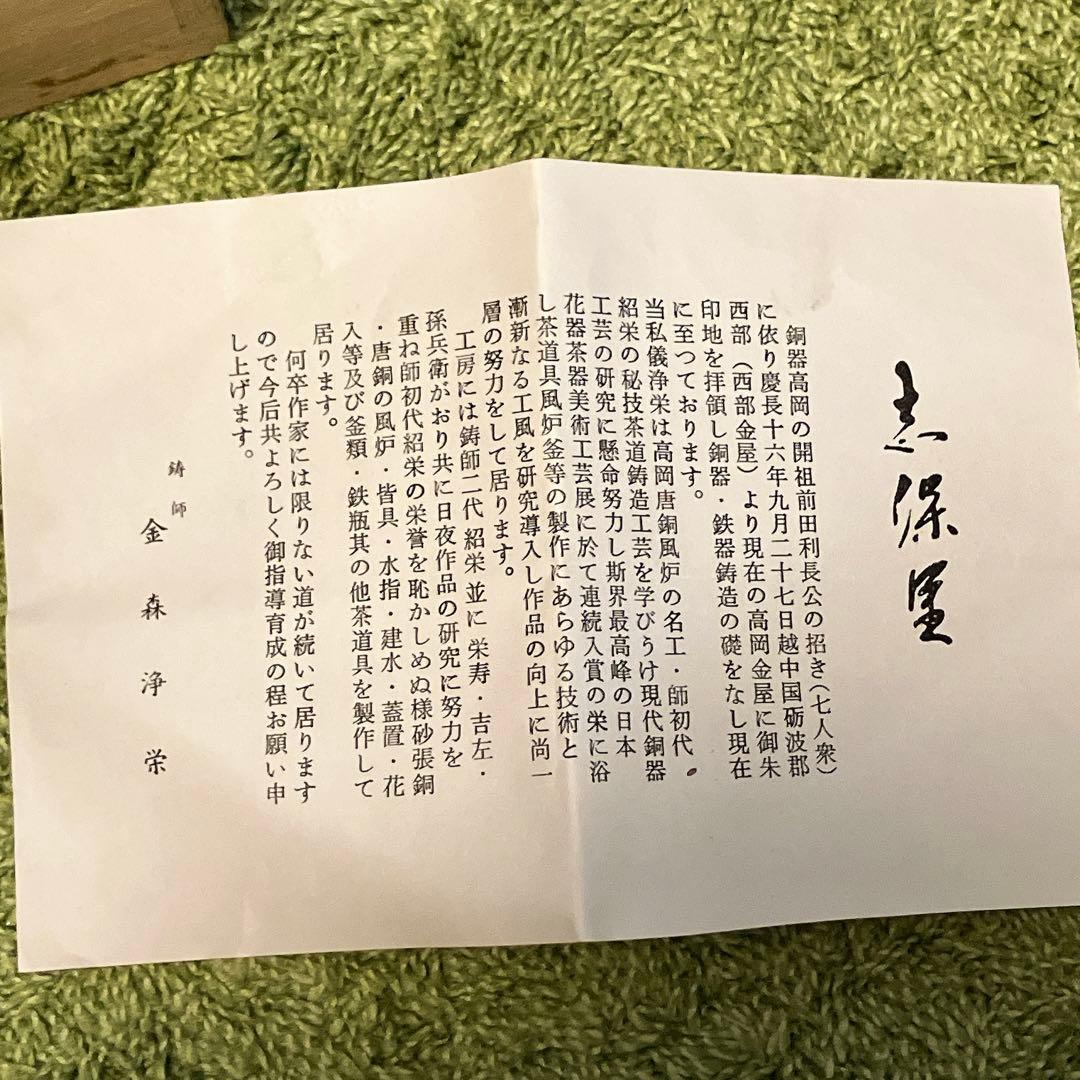 志保里
銅器高岡の開祖前田利長公の招き(七人衆)
に依り慶長十六年九月二十七日越中国砺波郡
西部(西部金屋)より現在の高岡金屋に御朱
印地を拝領し銅器・鉄器鋳造の礎をなし現在
に至つております。
当私儀浄栄は高岡唐銅風炉の名工・師初代
紹栄の秘技茶道鋳造工芸を学びうけ現代銅器
工芸の研究に懸命努力し斯界最高峰の日本
花器茶器美術工芸展に於て連続入賞の栄に浴
し茶道具風炉釜等の製作にあらゆる技術と
漸新なる工風を研究導入し作品の向上に尚一
層の努力をして居ります。
工房には鋳師二代 紹栄 並に 栄寿・吉左・
孫兵衛がおり共に日夜作品の研究に努力を
重ね師初代紹栄の栄誉を恥かしめぬ様砂張銅
・唐銅の風炉・皆具・水指・建水・蓋置・花
入等及び釜類・鉄瓶其の他茶道具を製作して
居ります。
何卒作家には限りない道が続いて居ります
ので今后共よろしく御指導育成の程お願い申
し上げます。
鋳師
金森浄栄